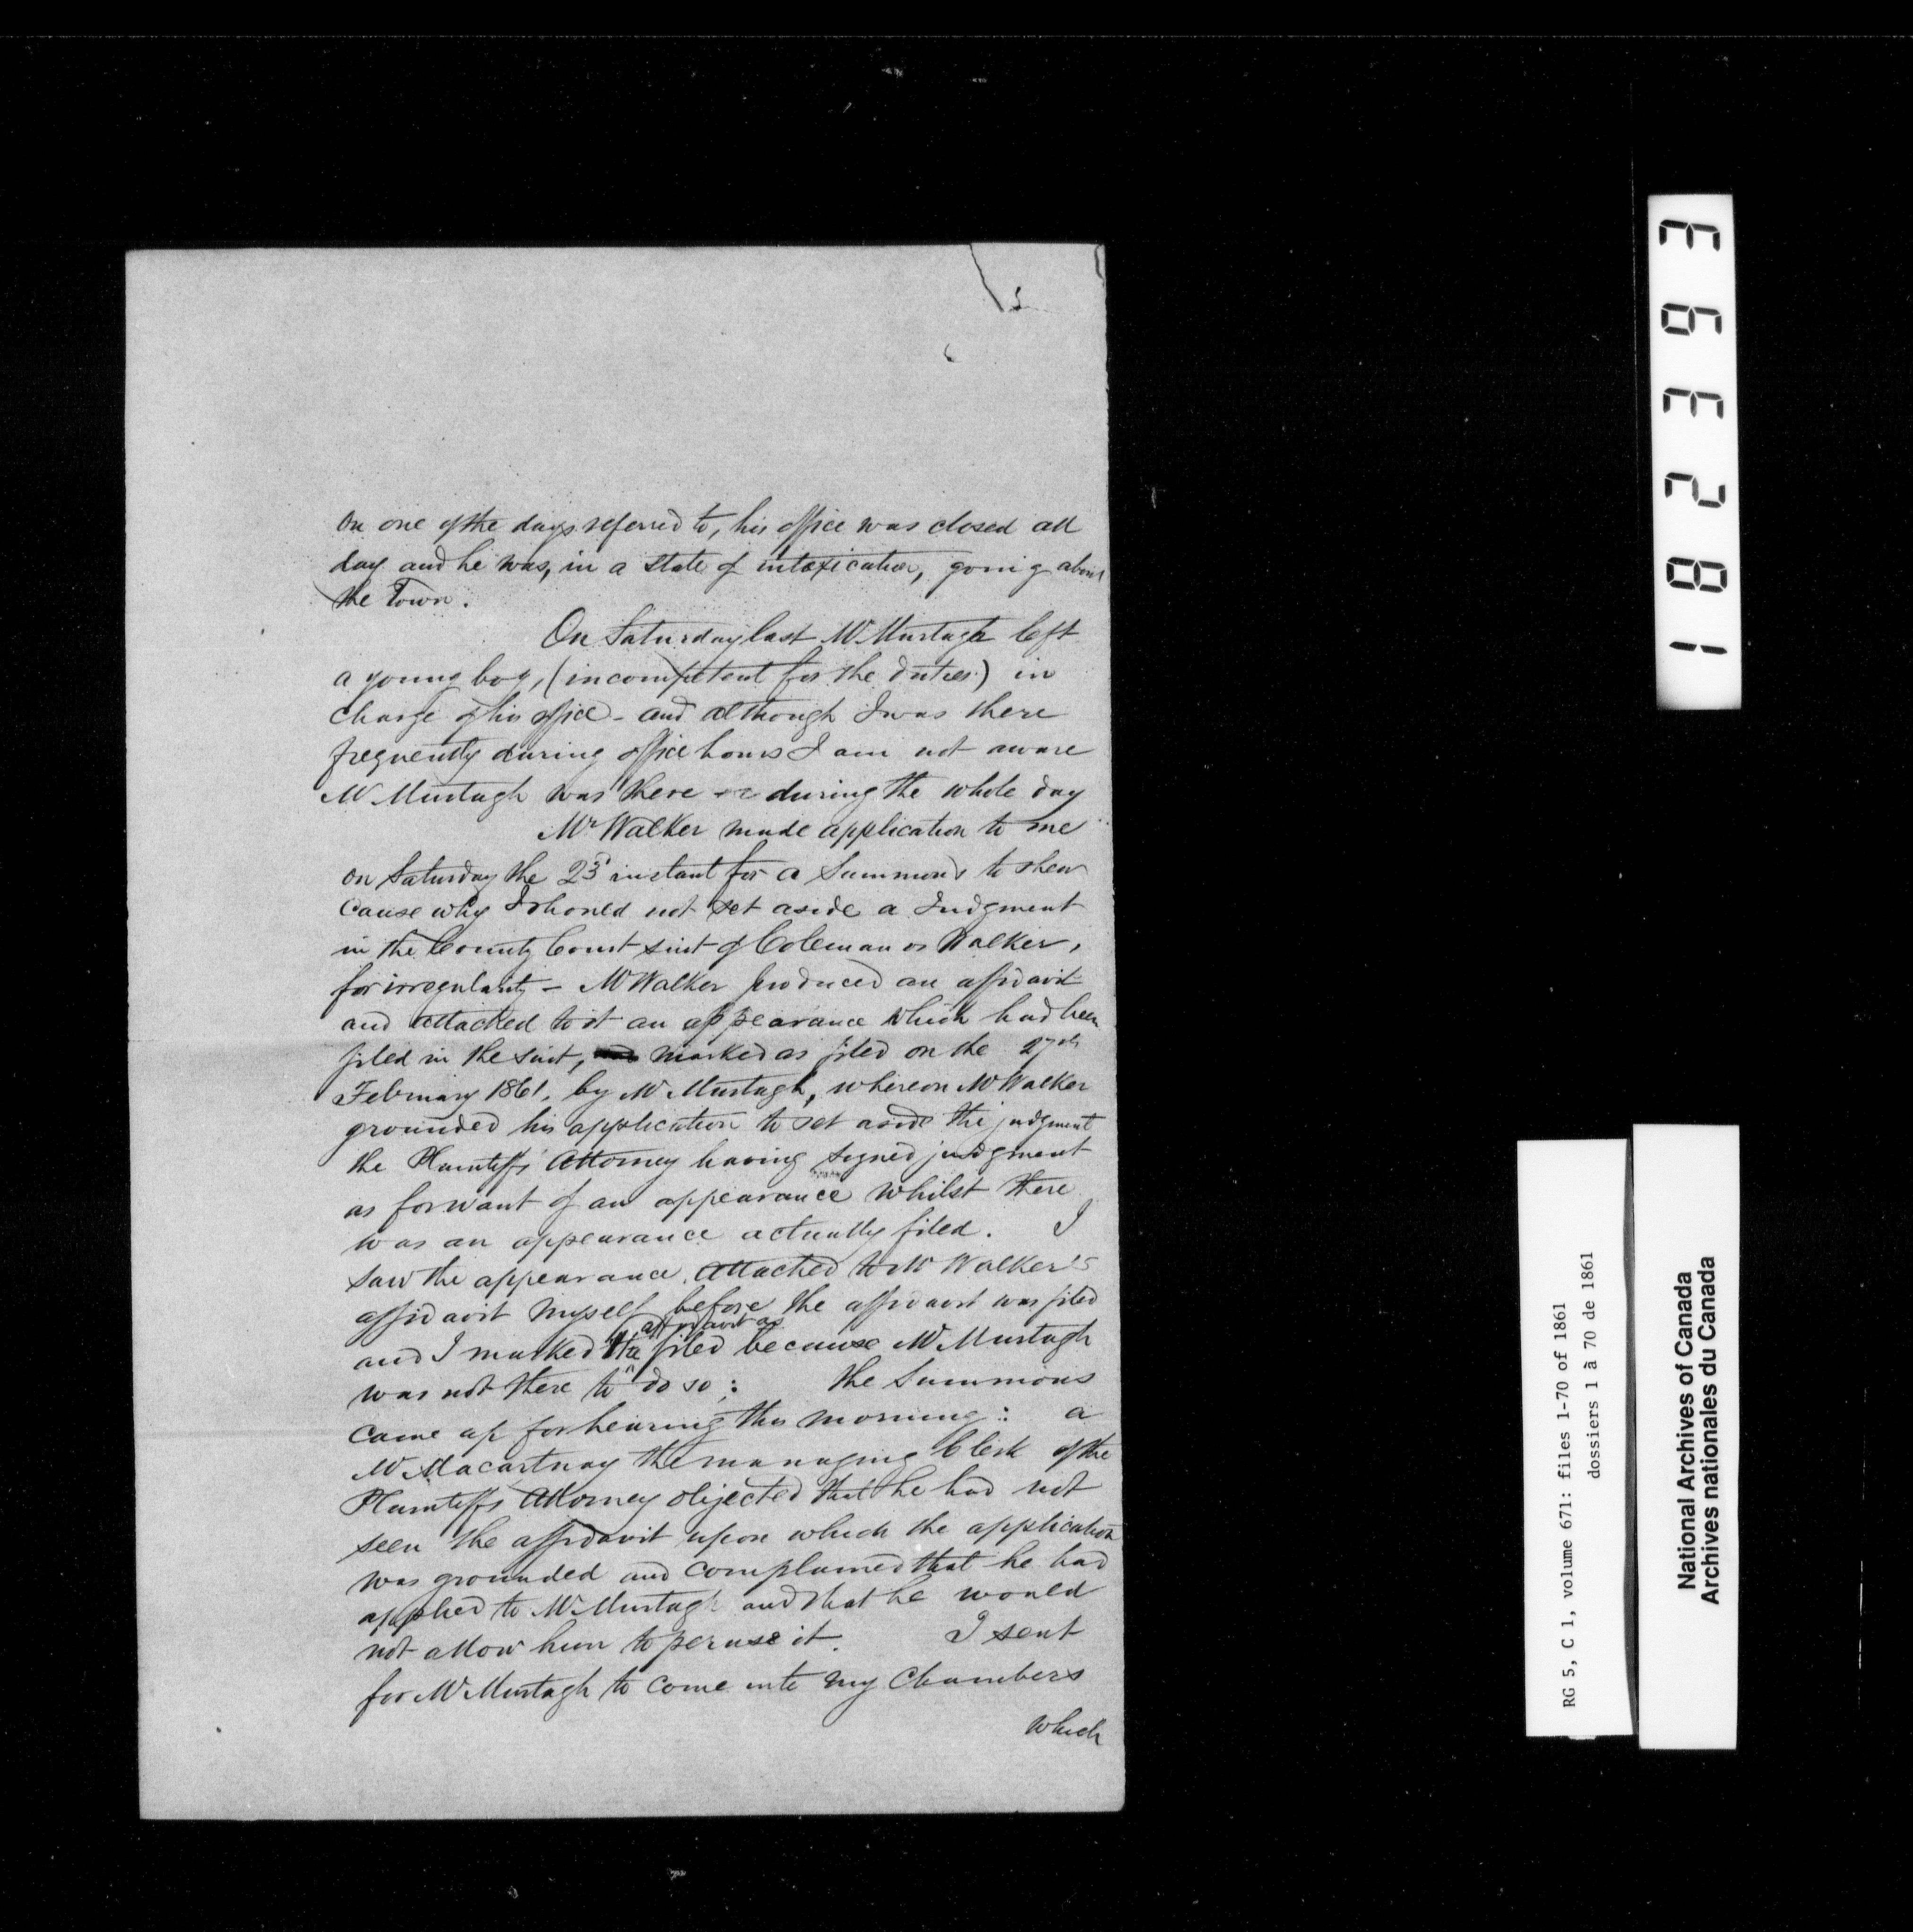 5
On one of the days referred to, his office was closed all
day and he was, in a state of intoxication, going about
the Town.
On Saturday last Mr Murtagh left
a young boy, (incompetent for the duties) in
charge of his office - and although I was there
frequently during office hours I am not aware
Mr Murtagh was there during the whole day
Mr Walker made application to me
on Saturday the 23d instant for a Summons to shew
Cause why I should not set aside a Judgment
in the County Court suit of Coleman vs Walker,
for irregularity - Mr Walker produced an affidavit
and attached to it an appearance which had been
filed in the suit, marked as filed on the 27th
February 1861, by Mr Murtagh, whereon Mr Walker
grounded his application to set aside the judgment
the Plaintiffs Attorney having signed judgment
as for want of an appearance whilst there
was an appearance actually filed. I
saw the appearance attached to Mr Walker's
affidavit myself before the affidavit was filed
and I marked the affidavit as filed because Mr Murtagh
was not there to do so: the Summons
came up for hearing this morning: a
Mr Macartnay the managing Clerk of the
Plaintiffs Attorney objected that he had not
seen the affidavit upon which the application
was grounded and complained that he had
applied to Mr Murtagh and that he would
not allow him to peruse it. I sent
for Mr Murtagh to come into my Chambers
which
182393
RG 5, C 1, volume 671: files 1-70 of 1861
dossiers 1 à 70 de 1861
National Archives of Canada
Archives nationales du Canada